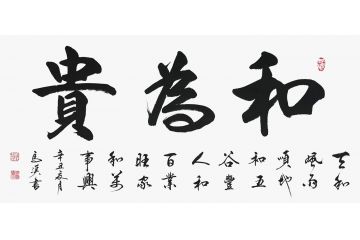 和為貴
天和
風雨
順地
和五
谷豐
人和
百業
旺家
和萬
事興
辛丑月
書